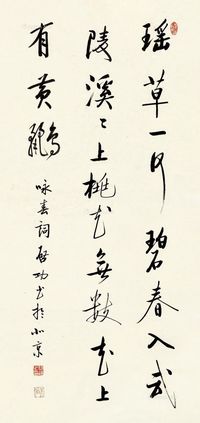 瑶草一何碧春入武
陵溪〻上桃花無數花上
有黄鸝
咏春詞 启功书於北京